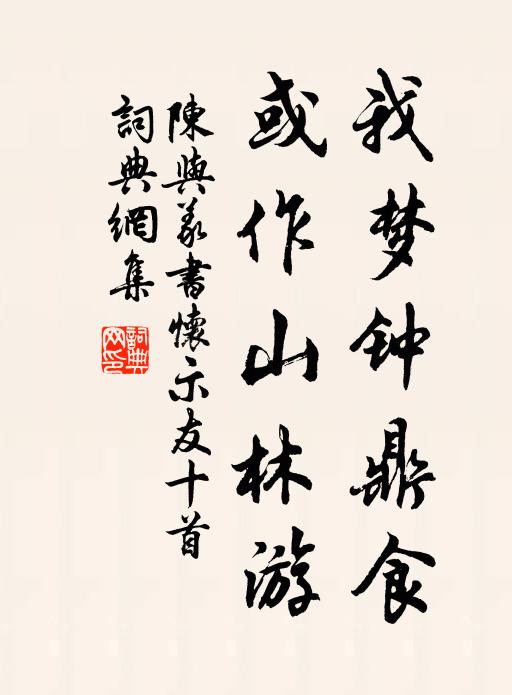 我梦钟鼎食
或作山林游
陳與義書懷示友十首
詞典網集
詞典
网印